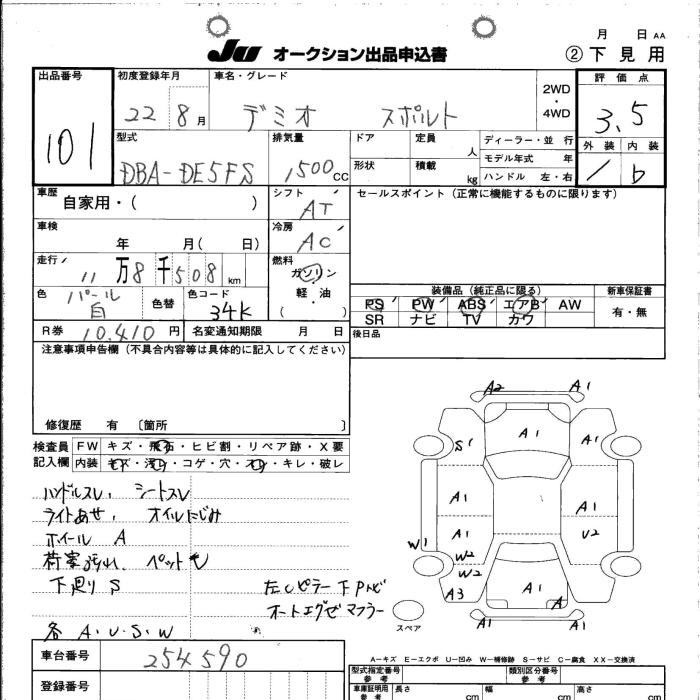 月 日 AA
JU オークション出品申込書 ② 下見用
出品番号 初度登録年月 車名・グレード 2WD・4WD 評価点
101 22 8月 デミオ スポルト 3.5
型式 排気量 ドア 定員 人 ディーラー・並行 外装 内装
DBA-DE5FS 1500 CC 形状 積載 kg モデル年式 年 ハンドル 左・右 b
車歴 自家用・( ) シフト AT セールスポイント(正常に機能するものに限ります)
車検 年 月( 日) 冷房 AC
走行 11万8千508km 燃料 ガソリン・軽・油 ( )
色 パール白 色替 色コード 34K
装備品(純正品に限る) 新車保証書
PS PW ABS エアB AW 有・無
SR ナビ TV カワ
R券 10.410円 名変通知期限 月 日 後日品
注意事項申告欄(不具合内容等は具体的に記入してください)
修復歴 有 〔箇所 〕
検査員記入欄 FW キズ・飛石・ヒビ割・リペア跡・X要
内装 キズ・汚れ・コゲ・穴・スレ・キレ・破レ
ハンドルスレ、シートスレ
ライトあせ、オイルにじみ
ホイール A
荷室汚れ、ペット毛
下廻り S 左Cピラー下Pトビ
各 A.U.S.W
A2 A1
A1
S1 A1
A1
A1 U2
W1 W2
W2
A3 A1 A
A1 A1
スペア
A-キズ E-エクボ U-凹み W-補修跡 S-サビ C-腐食 XX-交換済
車台番号 254590
登録番号
型式指定番号 参考 類別区分番号 参考
車庫証明用 参考 長さ cm 幅 cm 高さ cm